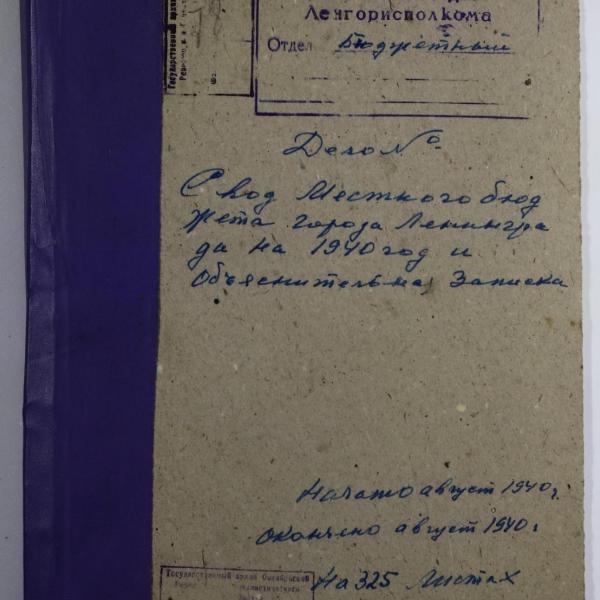 Государственный архив
Ленгорисполкома
Отдел Бюджетный
Дело №
Свод Местного бюд
жета города Ленингра
да на 1940 год и
Объяснительна Записка
Начато август 1940 г.
окончено август 1940 г
Государственный архив Октябрьской
На 325 листах